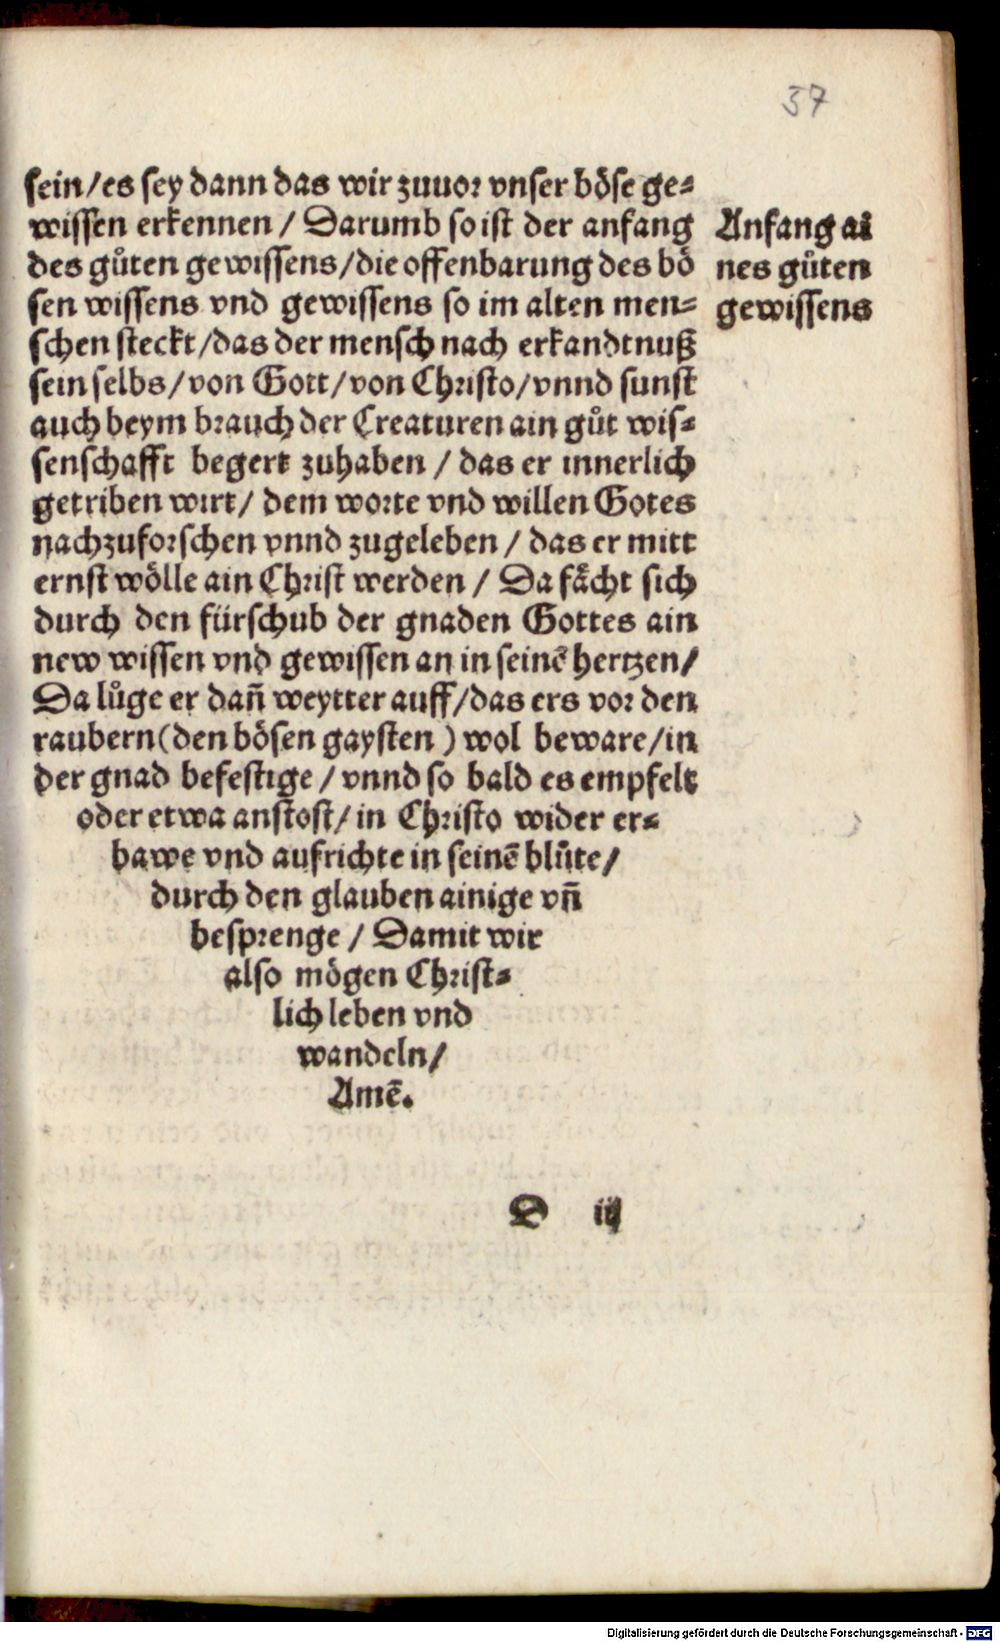 37
sein/es sey dann das wir zuuor vnser böse ge-
wissen erkennen / Darumb so ist der anfang
des gůten gewissens/die offenbarung des bö
sen wissens vnd gewissens so im alten men-
schen steckt/das der mensch nach erkandtnuß
sein selbs/von Gott/von Christo/vnnd sunst
auch beym brauch der Creaturen ain gůt wis-
senschafft begert zuhaben / das er innerlich
getriben wirt/ dem worte vnd willen Gotes
nachzuforschen vnnd zugeleben / das er mitt
ernst wölle ain Christ werden / Da fächt sich
durch den fürschub der gnaden Gottes ain
new wissen vnd gewissen an in seinē hertzen/
Da lůge er dañ weytter auff/das ers vor den
raubern(den bösen gaysten ) wol beware/in
der gnad befestige / vnnd so bald es empfelt
oder etwa anstost/ in Christo wider er-
bawe vnd aufrichte in seinē blůte/
durch den glauben ainige vñ
besprenge / Damit wir
also mögen Christ-
lich leben vnd
wandeln/
Amē.
Anfang ai
nes gůten
gewissens
D iij
Digitalisierung gefördert durch die Deutsche Forschungsgemeinschaft - DFG